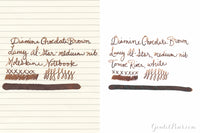 Diamine Chocolate Brown
Lamy Al-Star medium nib
Moleskine Notebook
xxxxxxx
Diamine Chocolate Brown
Lamy Al-Star medium nib
Tomoe River white
xxxxxxx